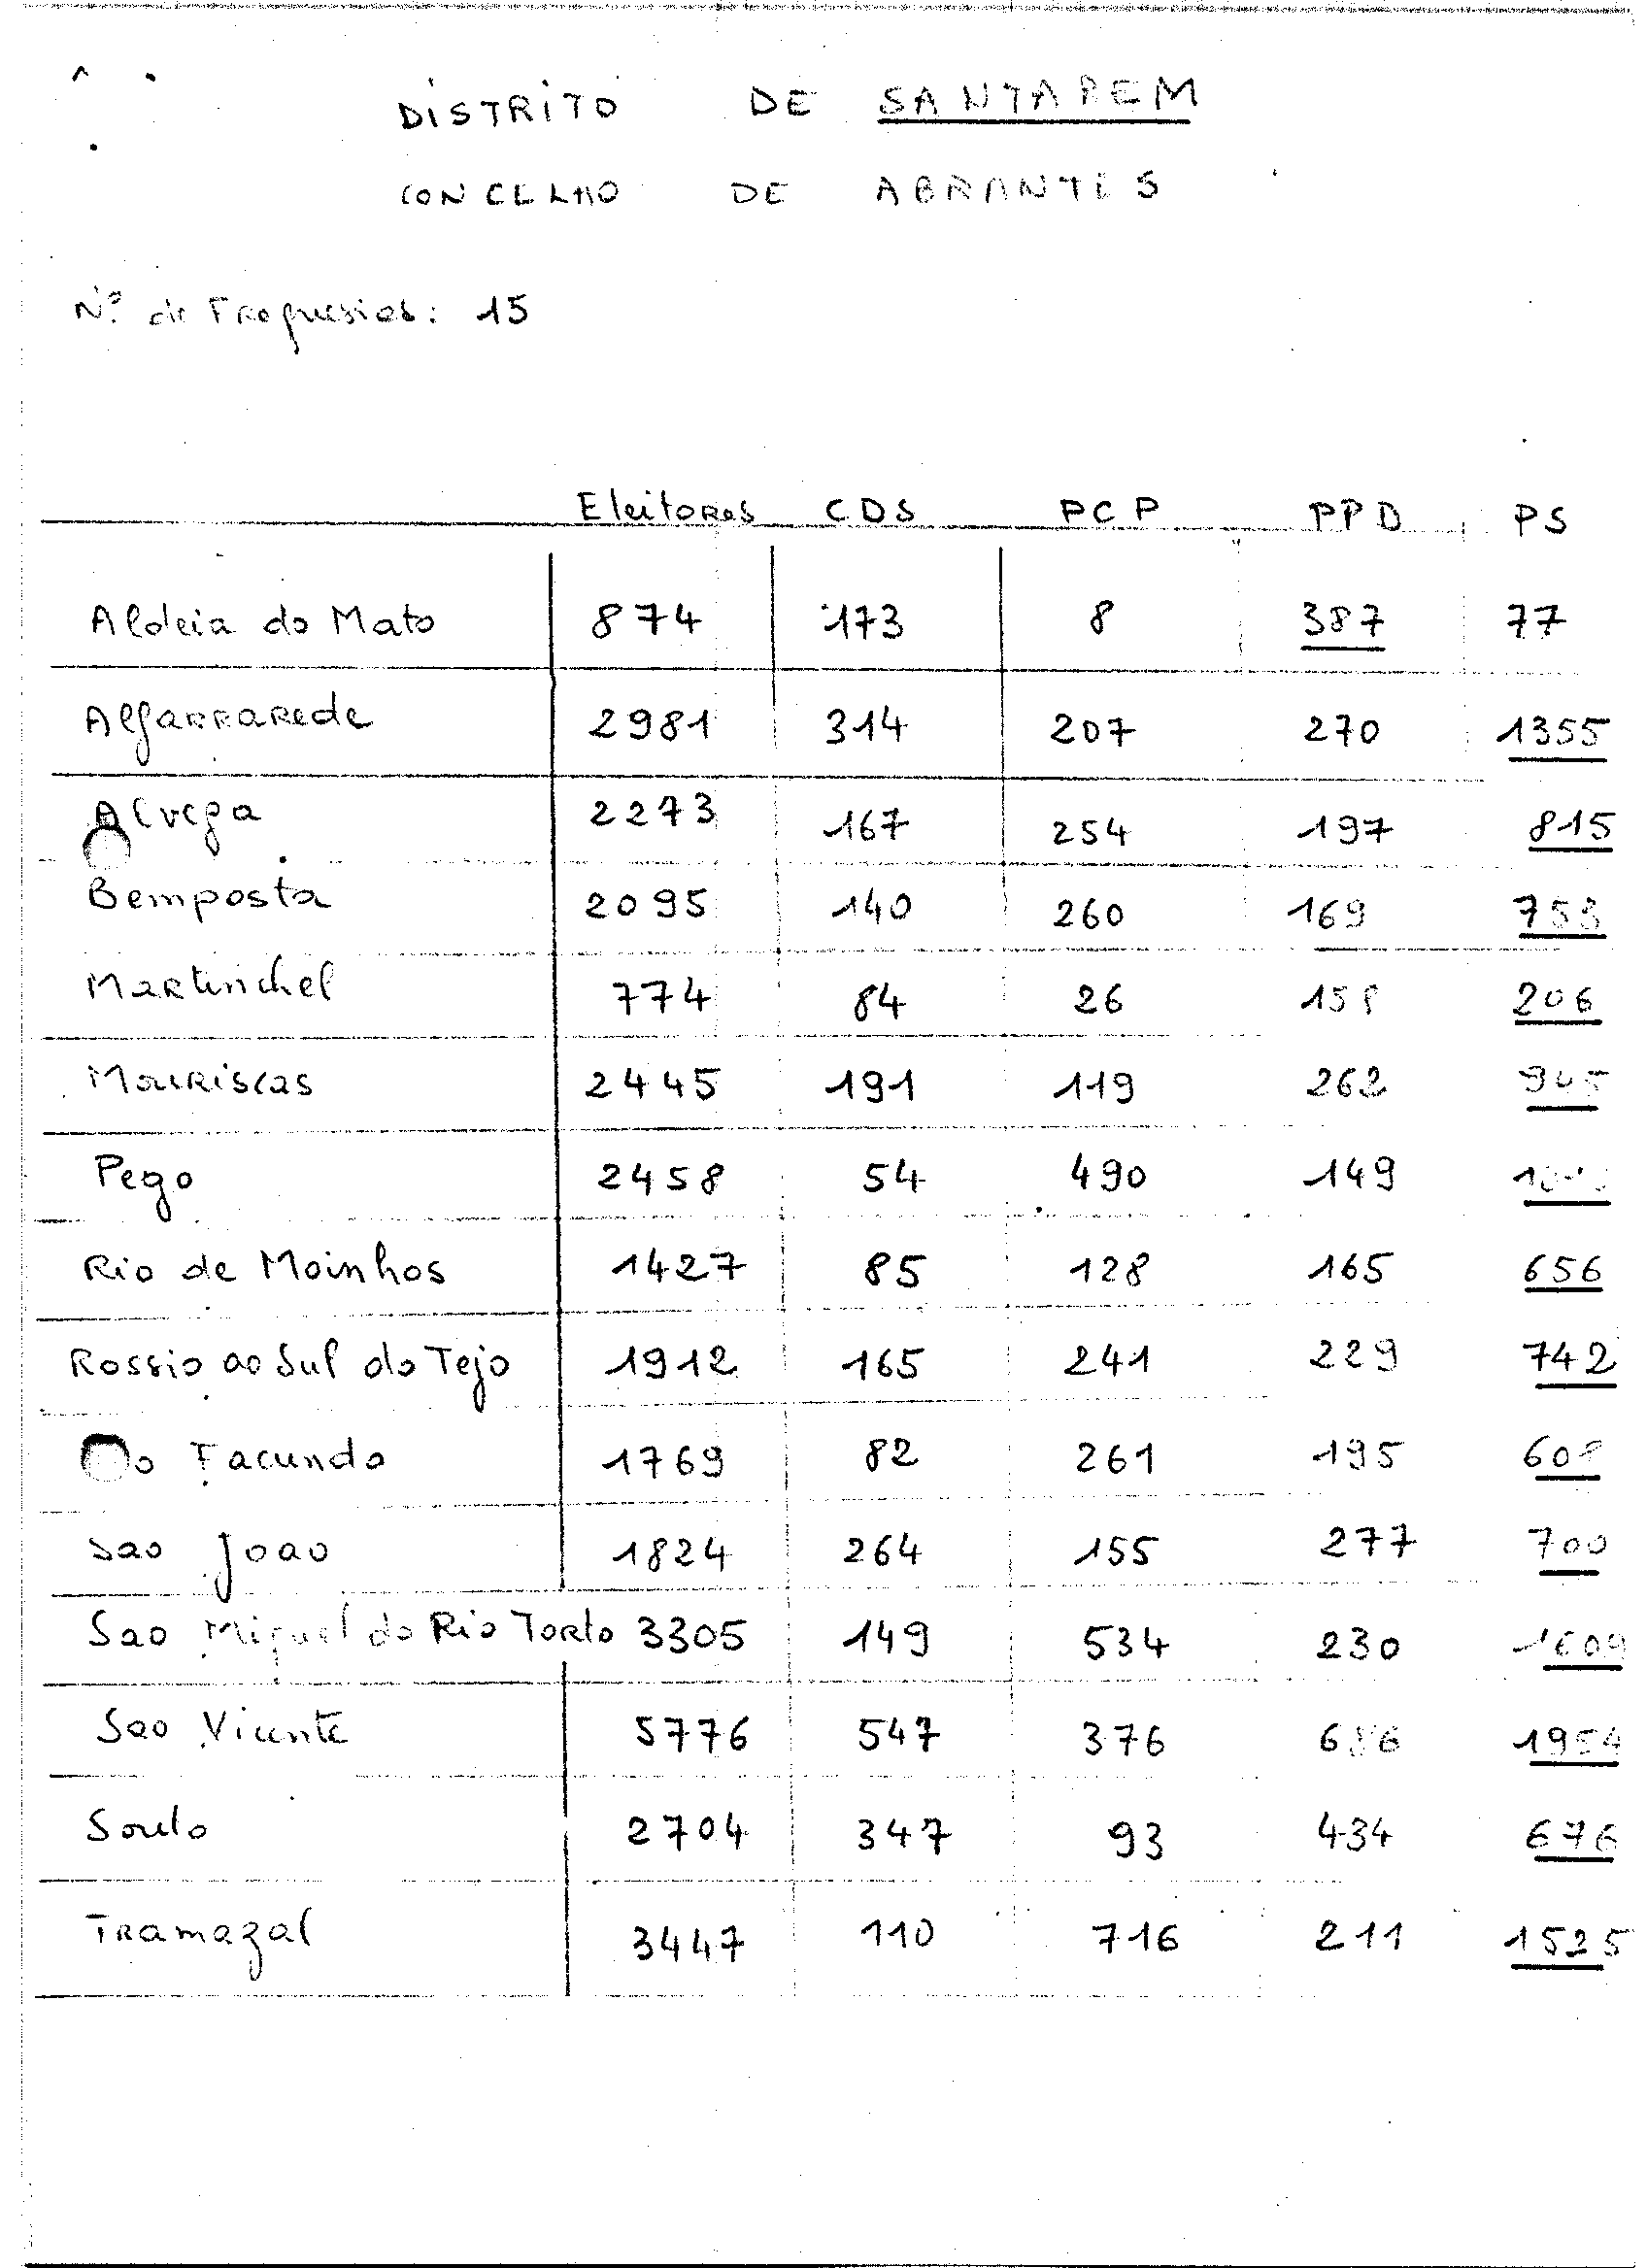 DISTRITO DE SANTAREM
CONCELHO DE ABRANTES
Nº de Freguesias: 15
Eleitores CDS PCP PPD PS
Aldeia do Mato 874 173 8 387 77
Alfarrarede 2981 314 207 270 1355
Alvega 2273 167 254 197 815
Bemposta 2095 140 260 169 758
Martinchel 774 84 26 158 206
Mouriscas 2445 191 119 262
Pego 2458 54 490 149
Rio de Moinhos 1427 85 128 165 656
Rossio ao Sul do Tejo 1912 165 241 229 742
Facundo 1769 82 261 195 608
Sao Joao 1824 264 155 277 700
Sao Miguel do Rio Torto 3305 149 534 230 1609
Sao Vicente 5776 547 376 686 1954
Souto 2704 347 93 434 676
Tramagal 3447 110 716 211 1525